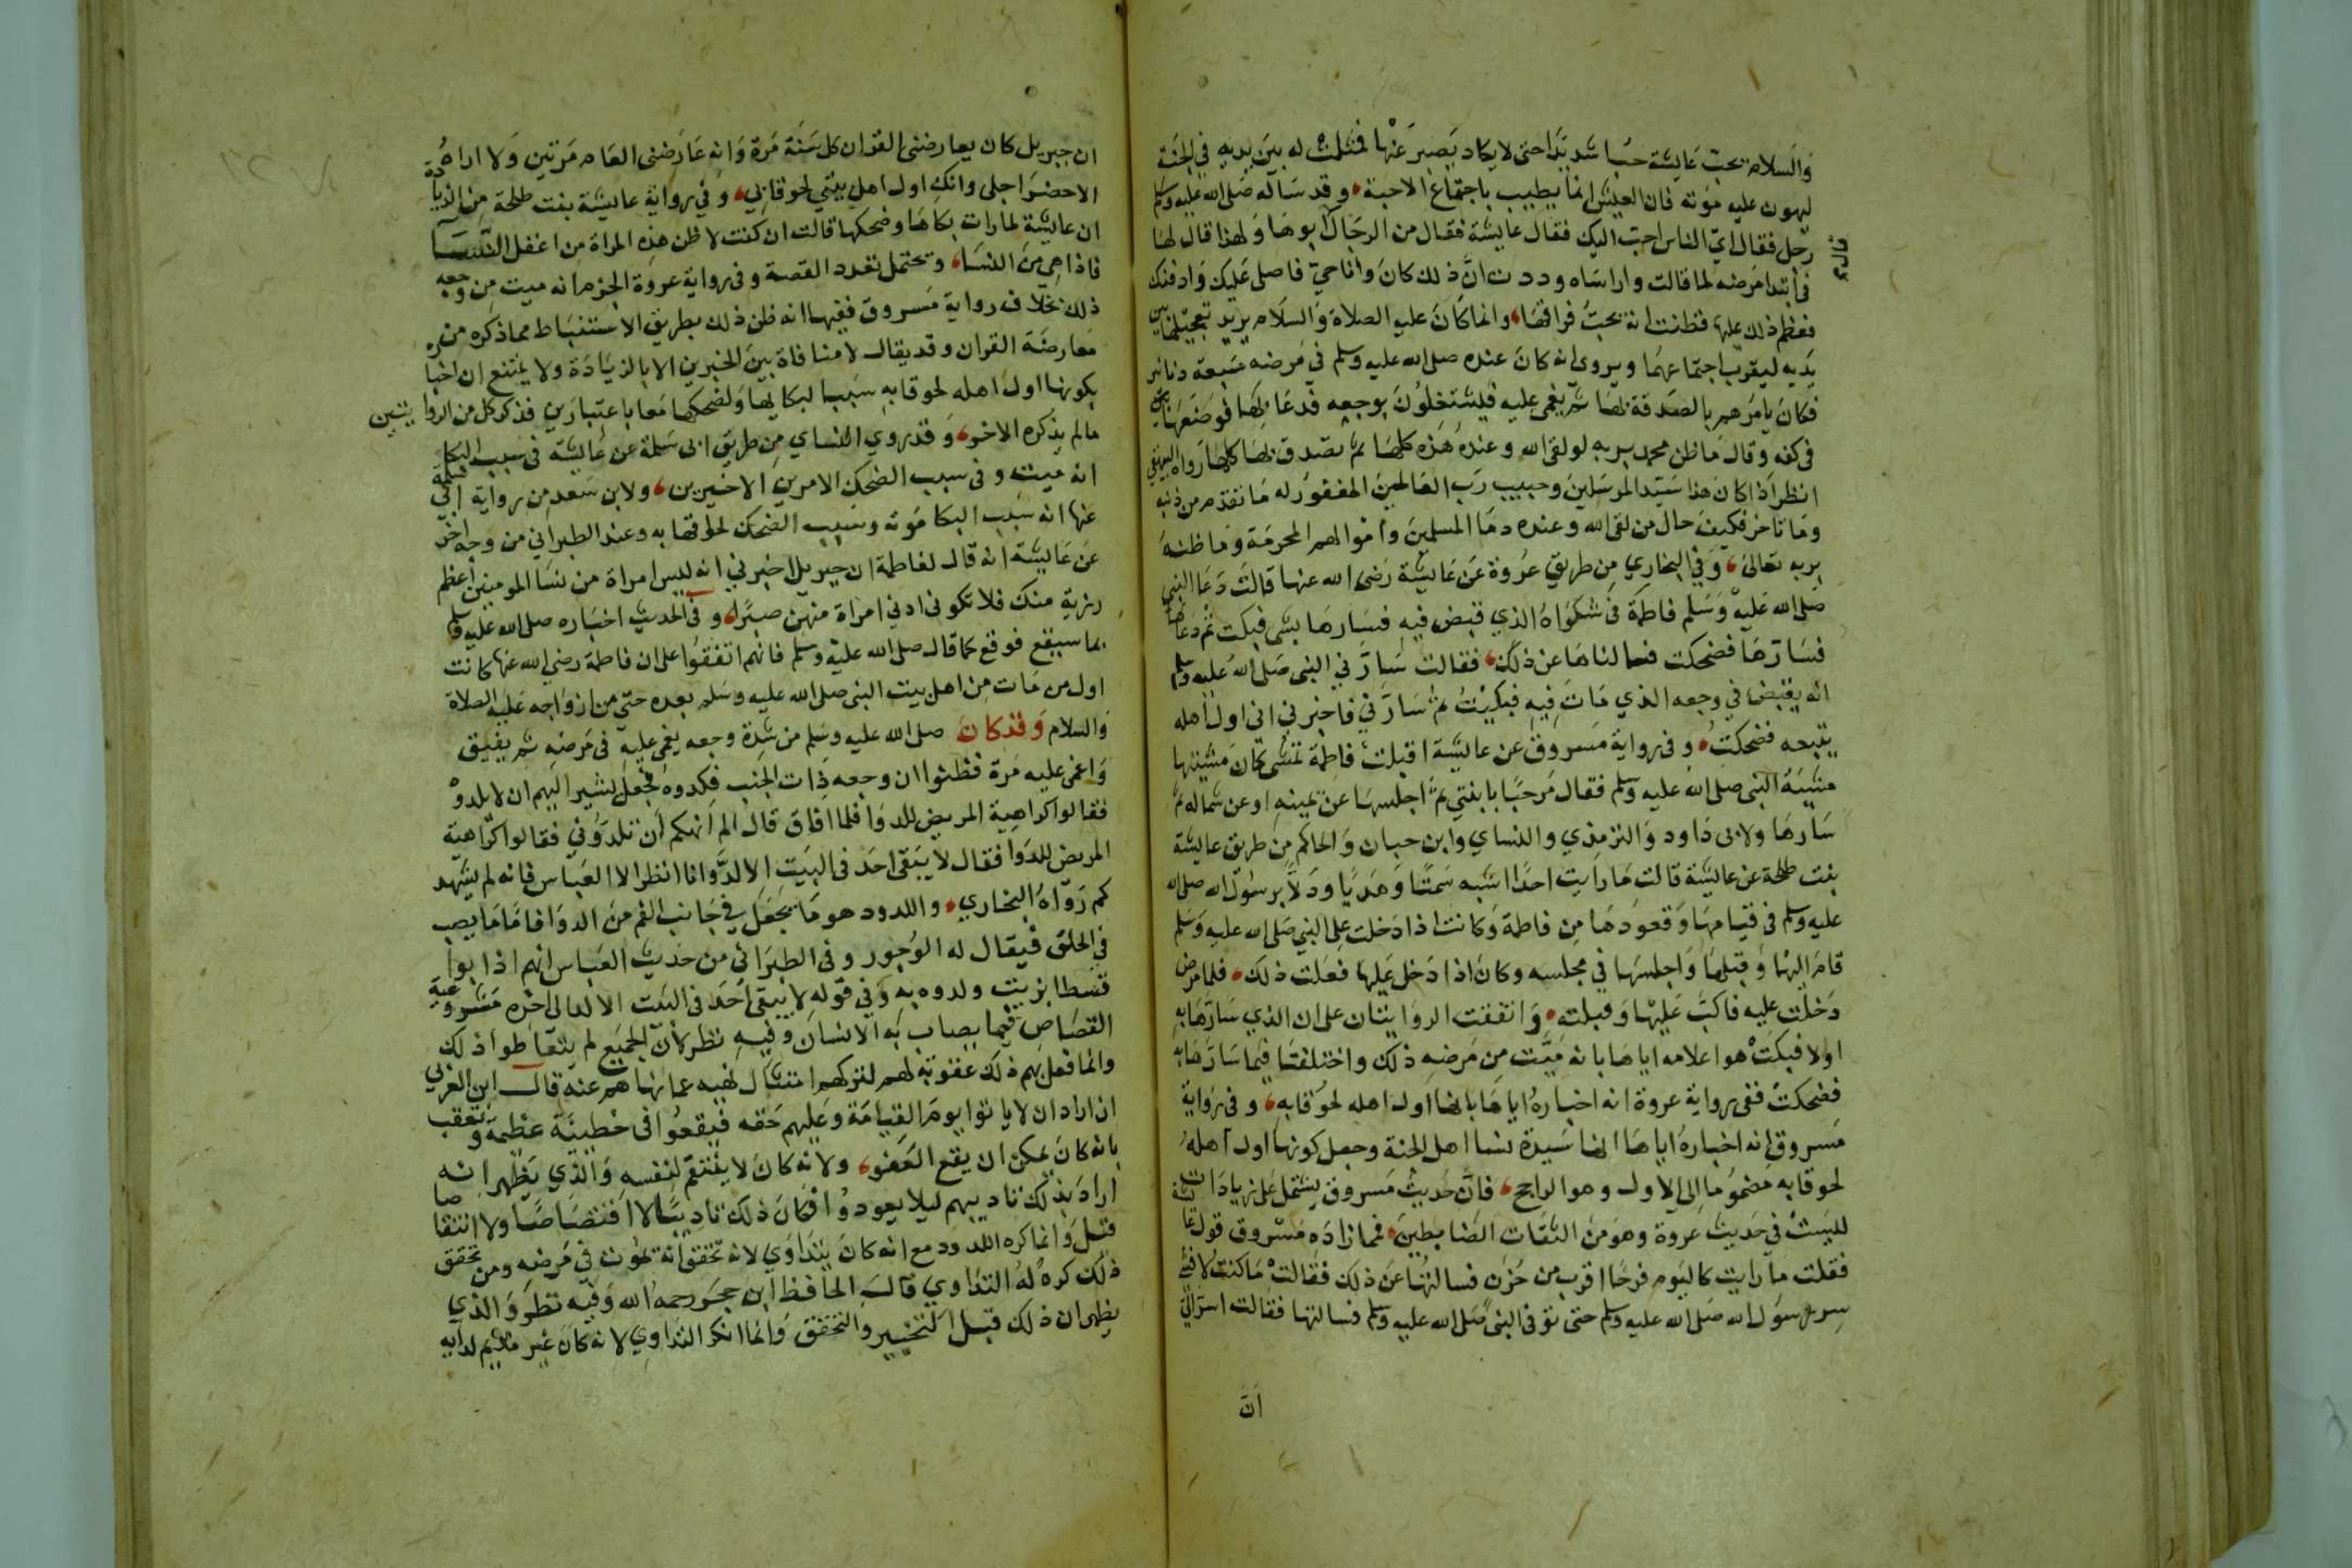 والسلام يحب عايشة حبا شديدا حتى لا يكاد يصبر عنها فمثلت له بين يديه في الجنة
ليهون عليه موته فان العيش انما يطيب باجتماع الاحبة وقد ساله صلى الله عليه وسلم
رجل فقال اي الناس احب اليك فقال عايشة فقال من الرجال قال ابوها ولهذا قال لها
في ابتدا مرضه لما قالت واراساه وددت ان ذلك كان وانا حي فاصلي عليك وادفنك
فعظم ذلك عليها فظنت انه يحب فراقها وانما كان عليه الصلاة والسلام يريد تعجيلها بين
يديه ليقرب اجتماعهما ويروى انه كان عنده صلى الله عليه وسلم في مرضه سبعة دنانير
فكان يامرهم بالصدقة بها ثم يغمى عليه فيشتغلون بوجعه فدعا بها فوضعها
في كفه وقال ما ظن محمد بربه لو لقي الله وعنده هذه كلها ثم تصدق بها كلها رواه البيهقي
انظر اذا كان هذا سيد المرسلين وحبيب رب العالمين المغفور له ما تقدم من ذنبه
وما تاخر فكيف حال من لقي الله وعنده دما المسلمين واموالهم المحرمة وما ظنه
بربه تعالى وفي البخاري من طريق عروة عن عايشة رضى الله عنها قالت دعا النبي
صلى الله عليه وسلم فاطمة في شكواه الذي قبض فيه فسارها بشي فبكت ثم دعاها
فسارها فضحكت فسالناها عن ذلك فقالت سارني النبي صلى الله عليه وسلم
انه يقبض في وجعه الذي مات فيه فبكيت ثم سارني فاخبرني اني اول اهله
يتبعه فضحكت وفي رواية مسروق عن عايشة اقبلت فاطمة تمشي كان مشيتها
مشية النبي صلى الله عليه وسلم فقال مرحبا بابنتي ثم اجلسها عن يمينه او عن شماله ثم
سارها ولابى داود والترمذي والنساي وابن حبان والحاكم من طريق عايشة
بنت طلحة عن عايشة قالت ما رايت احدا اشبه سمتا وهديا ودلا برسول الله صلى الله
عليه وسلم في قيامها وقعودها من فاطمة وكانت اذا دخلت على النبي صلى الله عليه وسلم
قام اليها وقبلها واجلسها في مجلسه وكان اذا دخل عليها فعلت ذلك فلما مرض
دخلت عليه فاكبت عليها وقبلته واتفقت الروايتان على ان الذي سارها به
اولا فبكت هو اعلامه اياها بانه ميت من مرضه ذلك واختلفتا فيما سارها به
فضحكت ففي رواية عروة انه اخباره اياها بانها اول اهله لحوقا به وفي رواية
مسروق انه اخباره اياها انها سيدة نسا اهل الجنة وجعل كونها اول اهله
لحوقا به مضموما الى الاول وهو الراجح فان حديث مسروق يشتمل على زيادات
ليست في حديث عروة وهو من الثقات الضابطين فمما زاده مسروق قول عا
فقلت ما رايت كاليوم فرحا اقرب من حزن فسالتها عن ذلك فقالت ما كنت لافشي
سر رسول الله صلى الله عليه وسلم حتى توفي النبي صلى الله عليه وسلم فسالتها فقالت اسر الي
ان
ان جبريل كان يعارضني القران كل سنة مرة وانه عارضني العام مرتين ولا اراه
الا حضر اجلي وانك اول اهل بيتي لحوقا بي وفي رواية عايشة بنت طلحة من الزيادة
ان عايشة لما رات بكاها وضحكها قالت ان كنت لاظن هذه المراة من اعقل النسا
فاذا هي من النسا ويحتمل تعدد القصة وفي رواية عروة الجزم انه ميت من وجعه
ذلك بخلاف رواية مسروق ففيها انه ظن ذلك بطريق الاستنباط مما ذكره من
معارضة القران وقد يقال لا منافاة بين الخبرين الا بالزيادة ولا يمتنع ان اخباره
بكونها اول اهله لحوقا به سببا لبكايها ولضحكها معا باعتبارين فذكر كل من الروايتين
ما لم يذكره الاخر وقد روي النساي من طريق ابي سلمة عن عايشة في سبب البكا
انه ميت وفي سبب الضحك الامرين الاخيرين ولابن سعد من رواية ابي سلمة
عنها انه سبب البكا موته وسبب الضحك لحوقها به وعند الطبراني من وجه اخر
عن عايشة انه قال لفاطمة ان جبريل اخبرني انه ليس امراة من نسا المومنين اعظم
رزية منك فلا تكوني ادني امراة منهن صبرا وفي الحديث اخباره صلى الله عليه وسلم
بما سيقع فوقع كما قال صلى الله عليه وسلم فانهم اتفقوا على ان فاطمة رضي الله عنها كانت
اول من مات من اهل بيت النبي صلى الله عليه وسلم بعده حتى من ازواجه عليه الصلاة
والسلام وقد كان صلى الله عليه وسلم من شدة وجعه يغمى عليه في مرضه ثم يفيق
واغمى عليه مرة فظنوا ان وجعه ذات الجنب فلدوه فجعل يشير اليهم ان لا يلدوه
فقالوا كراهية المريض للدوا فلما افاق قال الم انهكم ان تلدوني فقالوا كراهية
المريض للدوا فقال لا يبقى احد في البيت الا لد وانا انظر الا العباس فانه لم يشهد
كم رواه البخاري واللدود هو ما يجعل في جانب الفم من الدوا فاما ما يصب
في الحلق فيقال له الوجور وفي الطبراني من حديث العباس انهم اذابوا
قسطا بزيت ولدوه به وفي قوله لا يبقى احد في البيت الا لد الى اخره مشروعية
القصاص فيما يصاب به الانسان وفيه نظر لان الجميع لم يتعاطوا ذلك
وانما فعل بهم ذلك عقوبة لهم لتركهم امتثال نهيه عما نهاهم عنه قال ابن العربي
ان اراد ان لا ياتوا يوم القيامة وعليهم حقه فيقعوا في خطيئة عظيمة وتعقب
بانه كان يمكن ان يقع العفو ولانه كان لا ينتقم لنفسه والذي يظهر انه
اراد بذلك تاديبهم ليلا يعودوا فكان ذلك تاديبا لا اقتصاصا ولا انتقاما
قيل وانما كره اللدود مع انه كان يتداوي لانه تحقق انه يموت في مرضه ومن تحقق
ذلك كره له التداوي قال الحافظ ابن حجر رحمه الله وفيه نظر والذي
يظهر ان ذلك قبل التخيير والتحقق وانما انكر التداوي لانه كان غير ملايم لدايه